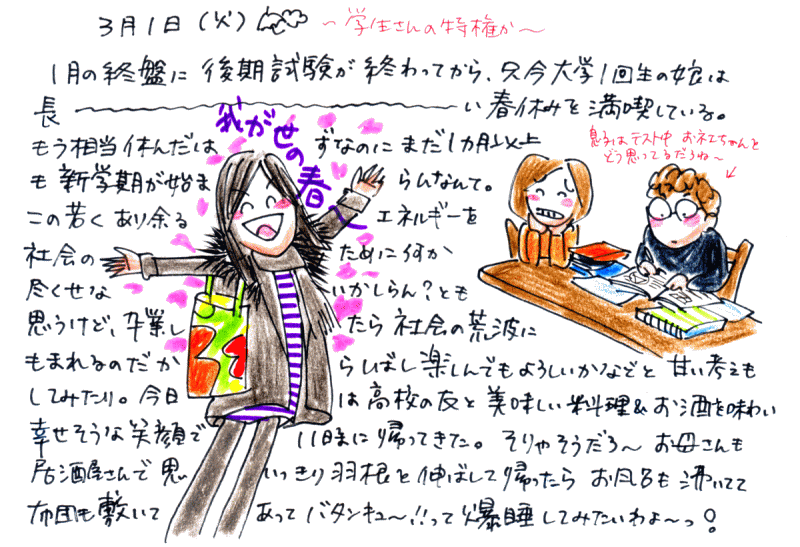 3月1日(火) ~学生さんの特権か~
1月の終盤に後期試験が終わってから、只今大学1回生の娘は
長～～～い春休みを満喫している。
もう相当休んだはずなのにまだ1カ月以上
も新学期が始まらんなんて。
この若くあり余るエネルギーを
社会のために何か
尽くせないかしらん?とも
思うけど、卒業したら社会の荒波に
もまれるのだからしばし楽しんでもよろしいかなどと甘い考えも
してみたり。今日は高校の友と美味しい料理&お酒を味わい
幸せそうな笑顔で11時に帰ってきた。そりゃそうだろ~お母さんも
居酒屋さんで思いっきり羽根を伸ばして帰ったらお風呂も沸いてて
布団も敷いてあってバタンキュー!!って爆睡してみたいわよ~っ!
我がせの春~
息子はテスト中 お不エちゃんを
どう思ってるだろね~